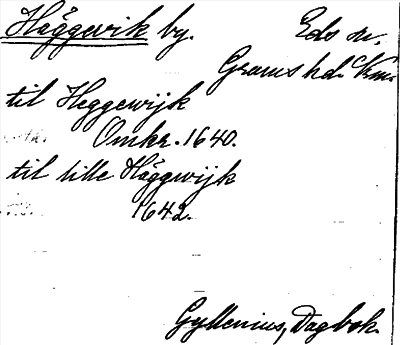 Häggevik by. Eds sn.
Grums hd. Vrm.
til Heggewijk
Omkr. 1640.
til lille Häggwijk
1642.
Gyllenius, Dagbok.